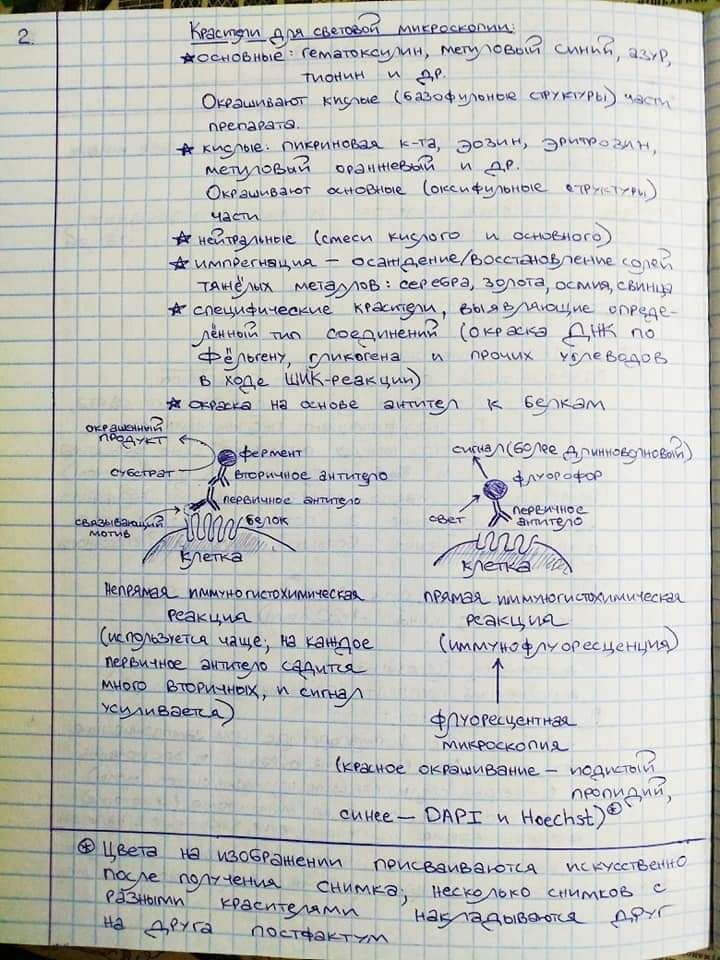 2.
Красители для световой микроскопии:
★ основные: гематоксулин, метуловый синий, азур,
тионин и др.
Окрашивают кислые (базофульные структуры) части
препарата.
★ кислые: пикриновая к-та, эозин, эритрозин,
метуловый оранжевый и др.
Окрашивают основные (оксифульные структуры)
части
★ нейтральные (смеси кислого и основного)
★ импрегнация – осаждение/восстановление солей
тяжёлых металлов: серебра, золота, осмия, свинца
★ специфические красители, выявляющие опреде-
лённый тип соединений (окраска ДНК по
Фёльгену, гликогена и прочих углеводов
в ходе ШИК-реакции)
★ окраска на основе антител к белкам
окрашенный
продукт
субстрат
фермент
вторичное антитело
первичное антитело
связывающий
мотив
белок
клетка
Непрямая иммуногистохимическая
реакция
(используется чаще; на каждое
первичное антитело садится
много вторичных, и сигнал
усиливается)
сигнал (более длинноволновый)
флуорофор
свет
первичное
антитело
клетка
прямая иммуногистохимическая
реакция
(иммунофлуоресценция)
флуоресцентная
микроскопия
(красное окрашивание – иодистый
пропидий,
синее – DAPI и Hoechst)*
* Цвета на изображении присваиваются искусственно
после получения снимка; несколько снимков с
разными красителями накладываются друг
на друга постфактум